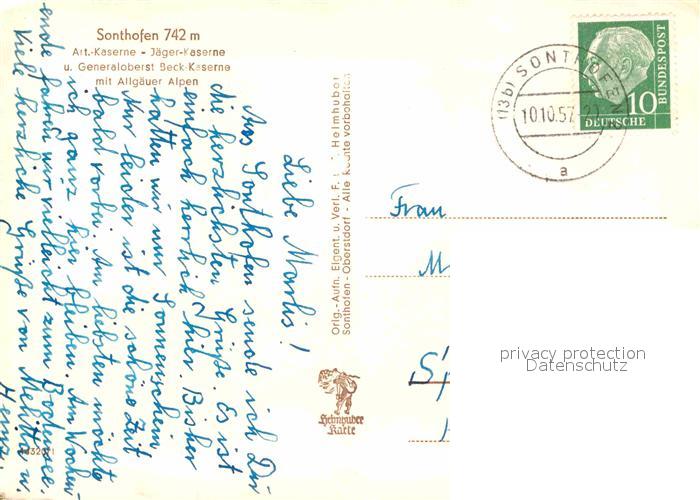 Sonthofen 742 m
Art.-Kaserne - Jäger-Kaserne
u. Generaloberst Beck-Kaserne
mit Allgäuer Alpen
Liebe Marlis!
Aus Sonthofen sende ich Dir
die herzlichsten Grüße. Es ist
einfach herrlich hier. Bisher
hatten wir nur Sonnenschein.
Nur leider ist die schöne Zeit
bald vorbei. Am liebsten möchte
ich ganz hier bleiben. Am Wochen-
ende fahren wir vielleicht zum Bodensee.
Viele herzliche Grüße von Melitta u.
Heinz.
Orig.-Aufn. Eigent. u. Verl. F. Heimhuber
Sonthofen - Oberstdorf - Alle Rechte vorbehalten
Heimhuber
Karte
(13b) SONTHOFEN
10.10.57
a
10
DEUTSCHE
BUNDESPOST
Frau
M
S
privacy protection
Datenschutz